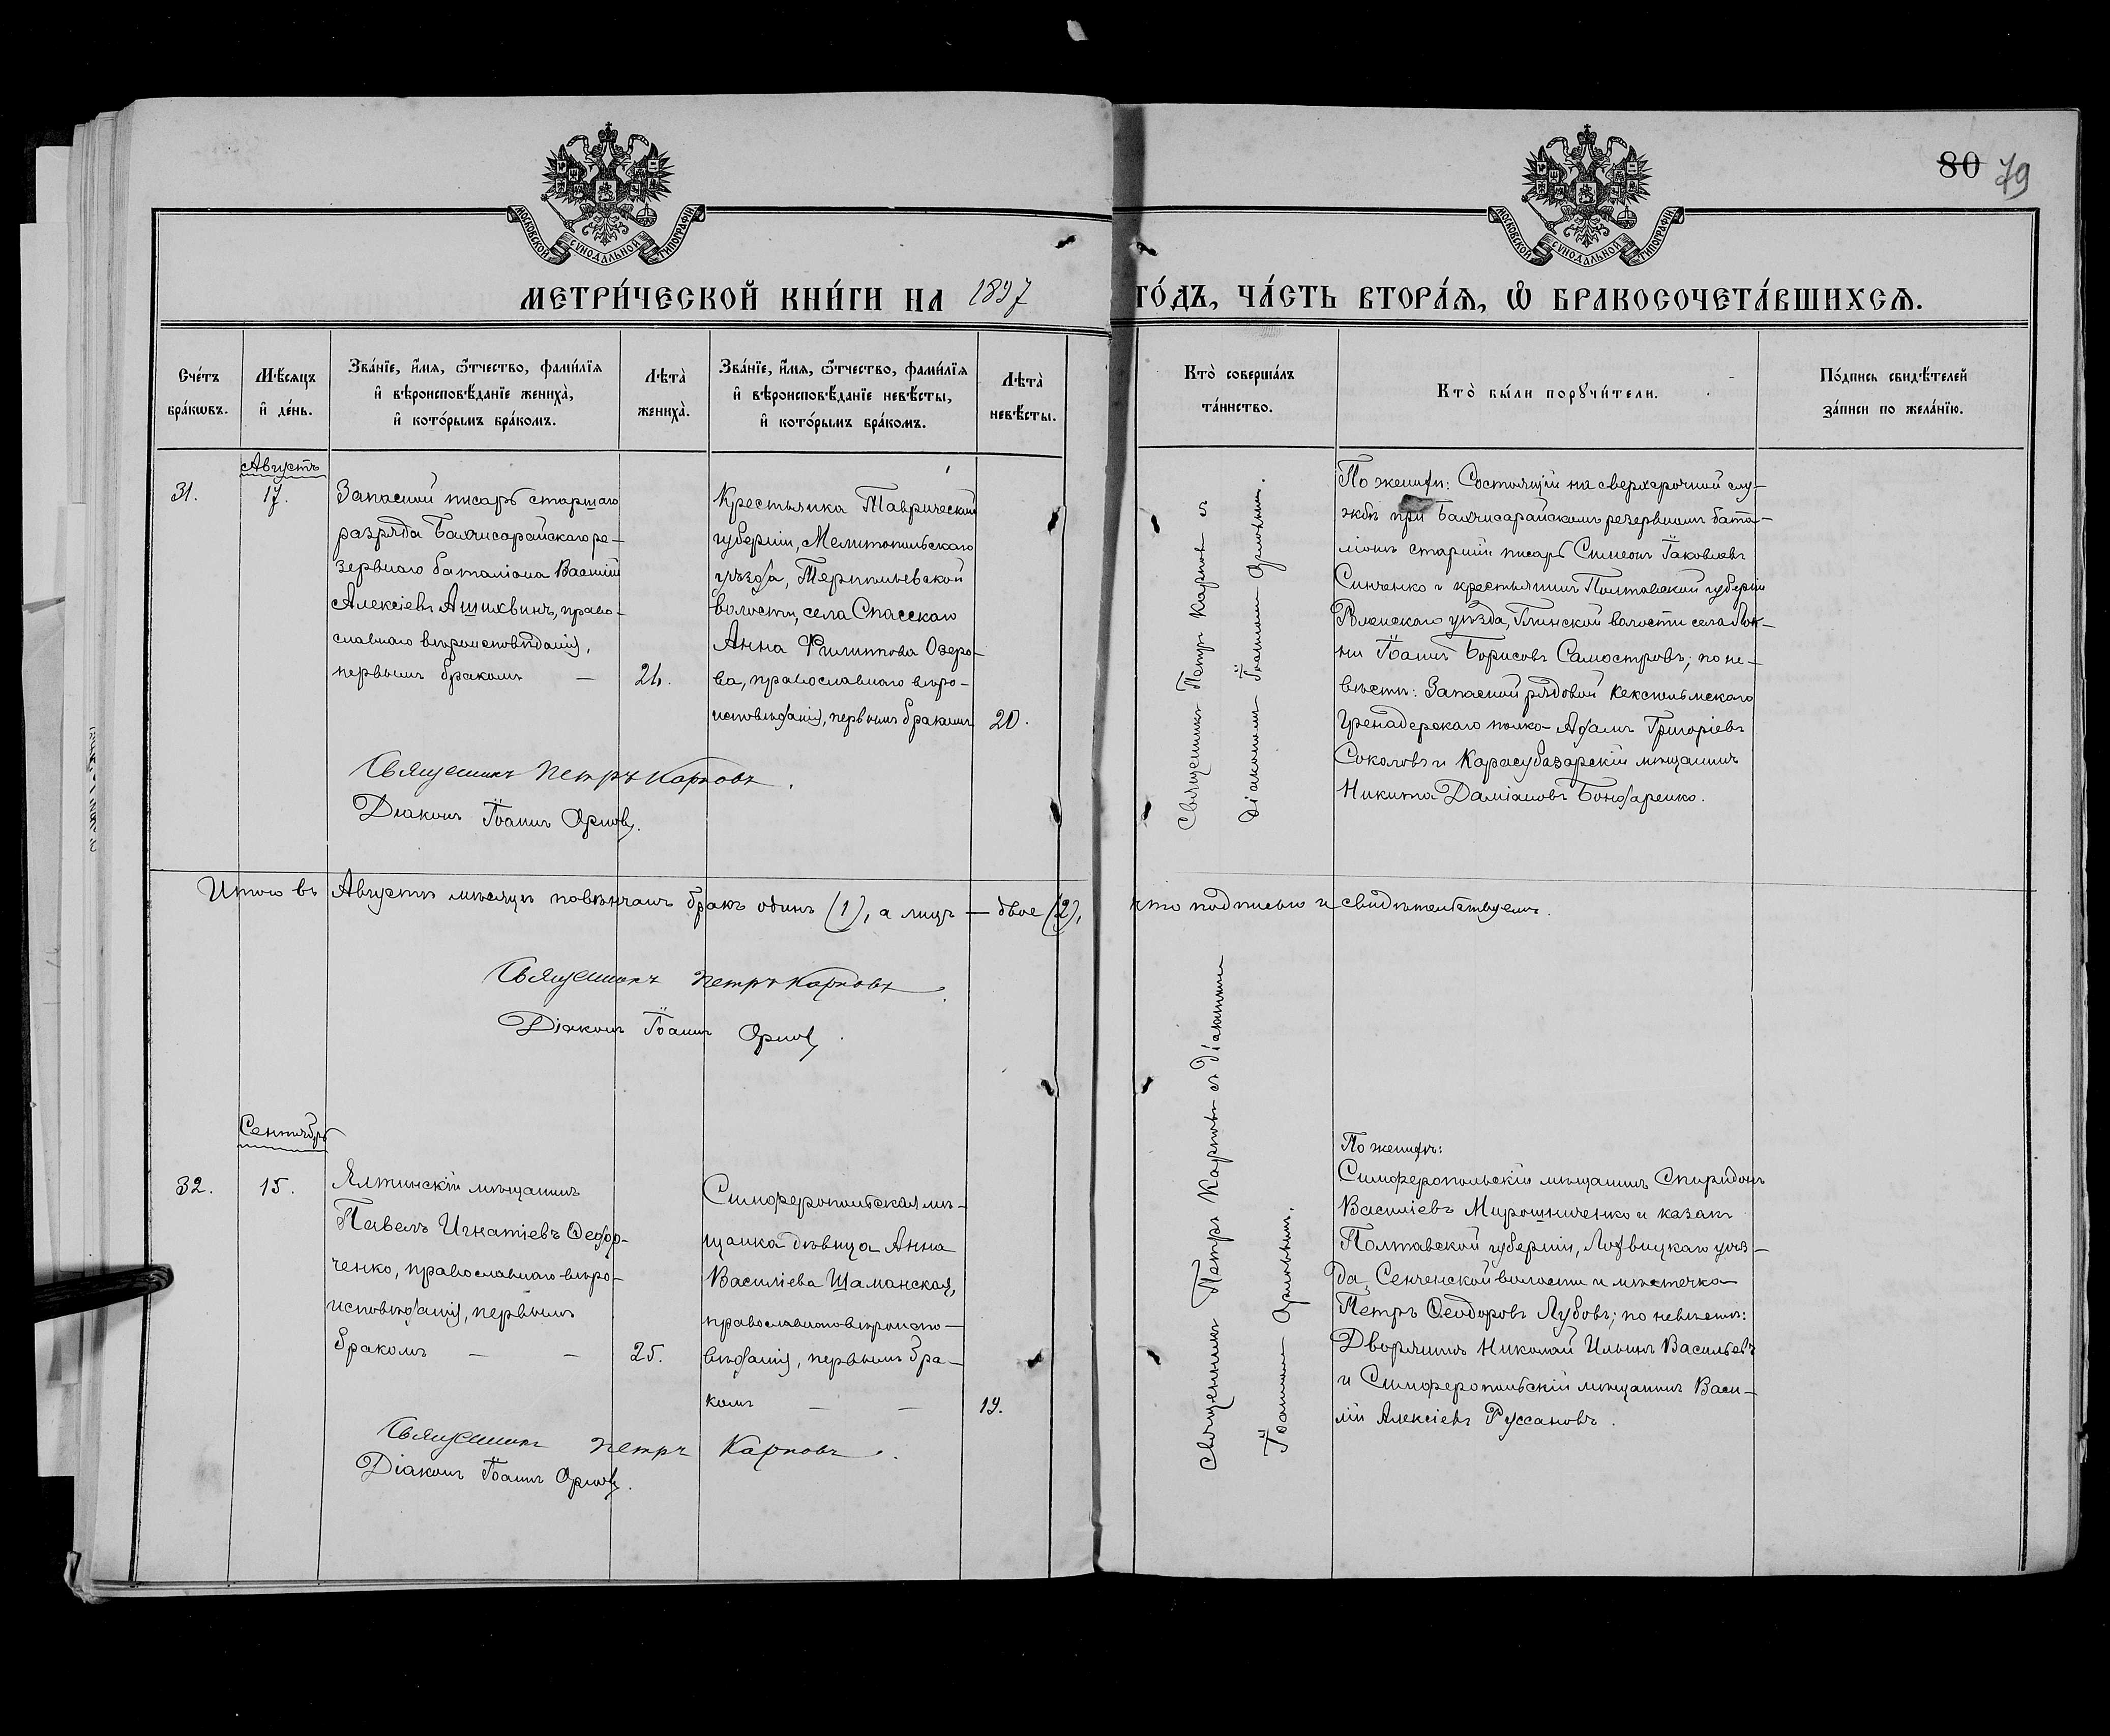 МОСКОВСКОЙ СѴНОДАЛЬНОЙ ТИПОГРАФІИ
МОСКОВСКОЙ СѴНОДАЛЬНОЙ ТИПОГРАФІИ
80 79
МЕТРИ́ЧЕСКОЙ КНИ́ГИ НА 1897 ГО́ДЪ, ЧА́СТЬ ВТОРА́Ѧ, Ѽ БРАКОСОЧЕТА́ВШИХСѦ.
Сче́тъ
бра́кѡвъ.
Мѣ́сяцъ
и҆ де́нь.
Зва́нїе, и҆́мя, ѻ҆́тчество, фами́лїя
и҆ вѣроисповѣ́данїе жениха̀,
и҆ кото́рымъ бра́комъ.
Лѣта̀
жениха̀.
Зва́нїе, и҆́мя, ѻ҆́тчество, фами́лїя
и҆ вѣроисповѣ́данїе невѣ́сты,
и҆ кото́рымъ бра́комъ.
Лѣта̀
невѣ́сты.
Кто̀ соверша́лъ
та́инство.
Кто̀ бы́ли порꙋчи́тели.
По́дпись свидѣ́телей
за́писи по жела́нїю.
31.
Августъ
17.
Запасной писарь старшаго
разряда Бахчисарайскаго ре-
зервнаго баталіона Василій
Алексіевъ Ашихминъ, право-
славнаго вѣроисповѣданія,
первымъ бракомъ —
24.
Крестьянка Таврической
губерніи, Мелитопольскаго
уѣзда, Терпѣньевской
волости, села Спасскаго
Анна Филиппова Озеро-
ва, православнаго вѣро-
исповѣданія, первымъ бракомъ
20.
Священникъ Петръ Карповъ съ
діакономъ Іоанномъ Орловымъ.
По женихѣ: Состоящій на сверхсрочной слу-
жбѣ при Бахчисарайскомъ резервномъ бата-
ліонѣ старшій писарь Симеонъ Іаковлевъ
Синченко и крестьянинъ Полтавской губерніи
Роменскаго уѣзда, Глинской волости села Лок-
ни Іоаннъ Борисовъ Самостровъ; по не-
вѣстѣ: Запасной рядовой Кексгольмскаго
Гренадерскаго полка Адамъ Григоріевъ
Соколовъ и Карасубазарскій мѣщанинъ
Никита Даміановъ Бондаренко.
Священникъ Петръ Карповъ.
Діаконъ Іоаннъ Орловъ.
Итого въ Августѣ мѣсяцѣ повѣнчанъ бракъ одинъ (1), а лицъ — двое (2), что подписью и свидѣтельствуемъ.
Священникъ Петръ Карповъ.
Діаконъ Іоаннъ Орловъ.
32.
Сентябрь
15.
Ялтинскій мѣщанинъ
Павелъ Игнатіевъ Ѳедор-
ченко, православнаго вѣро-
исповѣданія, первымъ
бракомъ — —
25.
Симферопольская мѣ-
щанка дѣвица Анна
Василіева Шаманская,
православнаго вѣроиспо-
вѣданія, первымъ бра-
комъ — —
19.
Священникъ Петръ Карповъ съ діакономъ
Іоанномъ Орловымъ.
По женихѣ:
Симферопольскій мѣщанинъ Спиридонъ
Василіевъ Мирошниченко и казакъ
Полтавской губерніи, Лохвицкаго уѣз-
да, Сенченской волости и мѣстечка
Петръ Ѳеодоровъ Лубовъ; по невѣстѣ:
Дворянинъ Николай Ильинъ Васильевъ
и Симферопольскій мѣщанинъ Васи-
лій Алексіевъ Руссановъ.
Священникъ Петръ Карповъ.
Діаконъ Іоаннъ Орловъ.